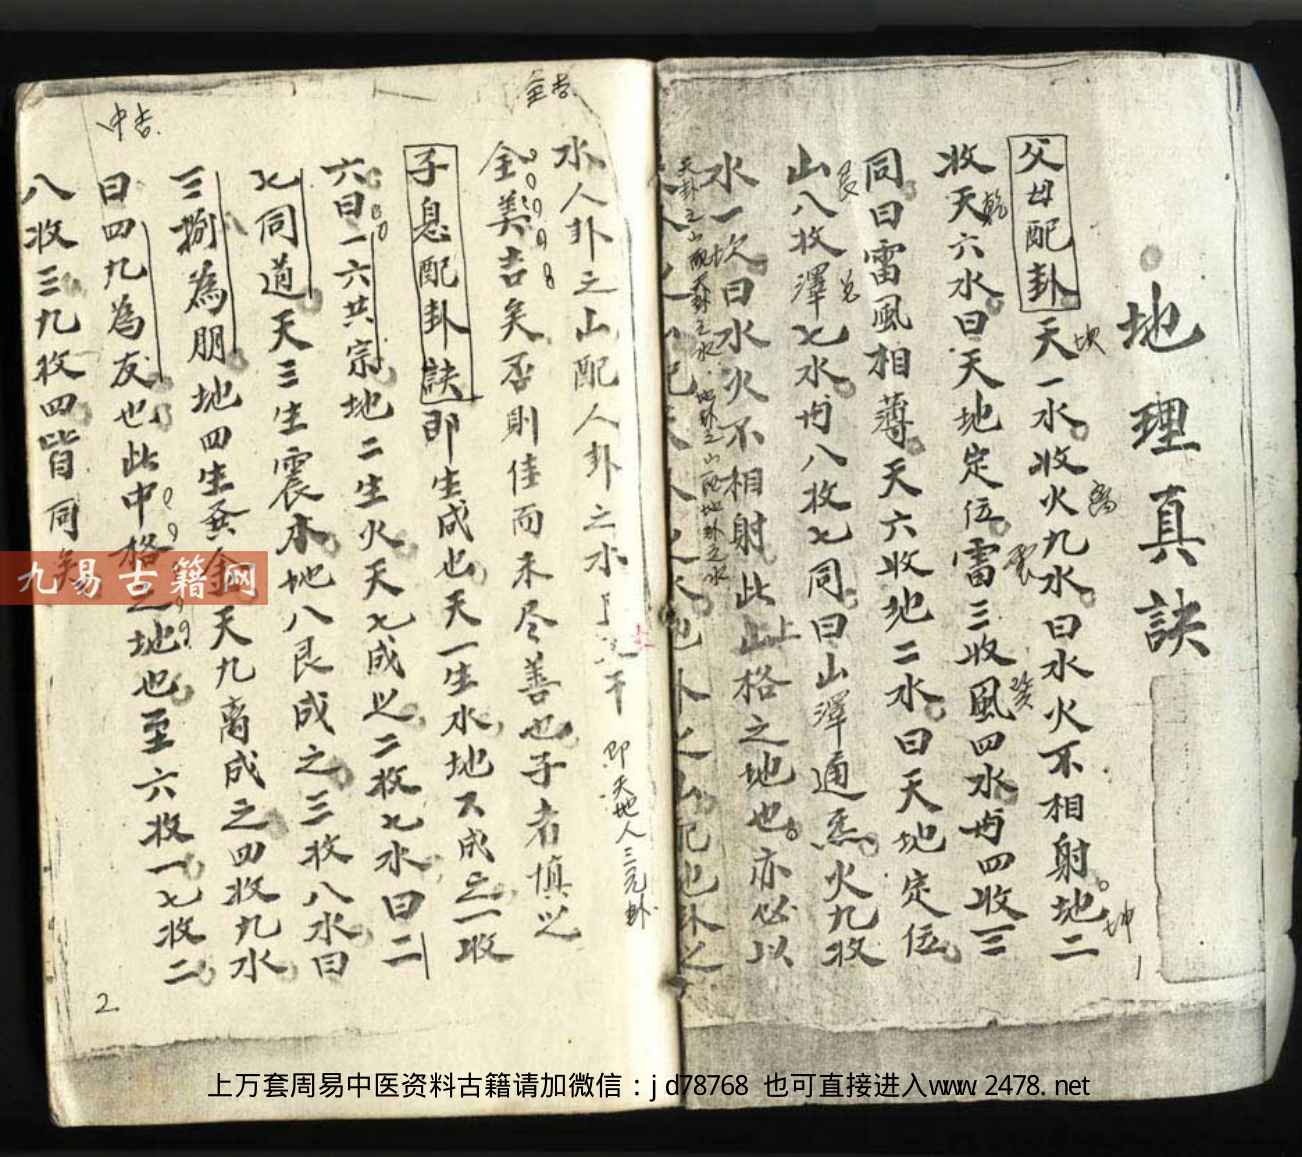 地理真訣
父母配卦 天一水收火九水曰水火不相射地二
收天六水曰天地定位雷三收風四水內四收三
同曰雷風相薄天六收地二水曰天地定位
山八收澤七水內八收七同曰山澤通炁火九收
水一坎曰水火不相射此上格之地也亦必以
天卦之山配天卦之水地卦之山配地卦之水
水人卦之山配人卦之水
即天地人三元卦
全美吉矣否則佳而未尽善也子者慎之
子息配卦訣 即生成也天一生水地六成之一收
六曰一六共宗地二生火天七成之二收七水曰二
七同道天三生震木地八艮成之三收八水曰
三捌為朋地四生金天九离成之四收九水
曰四九為友也此中格之地也至六收一七收二
八收三九收四皆同矣
坎
离
坤
乾
震
艮
兌
上
中吉
1
2
九易古籍网
上万套周易中医资料古籍请加微信：jd78768 也可直接进入www.2478.net